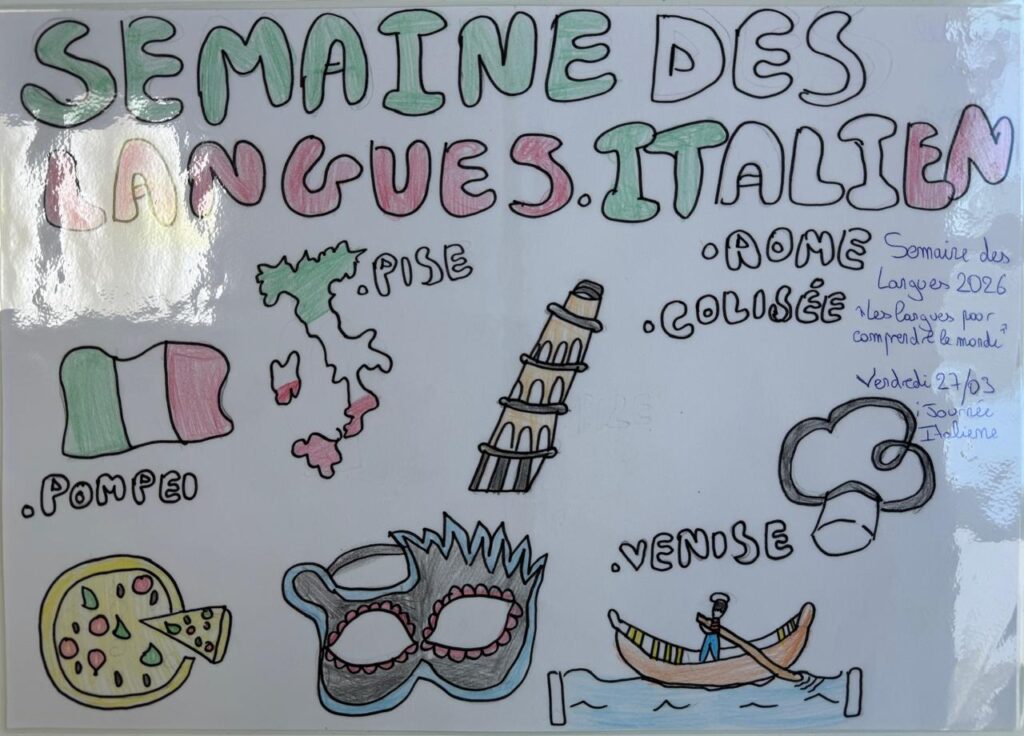 SEMAINE DES
LANGUES.ITALIEN
.PISE
.ROME
.COLISÉE
Semaine des
Langues 2026
"Les langues pour
comprendre le monde"
Vendredi 27/03
: Journée
Italiene
.POMPEI
.VENISE